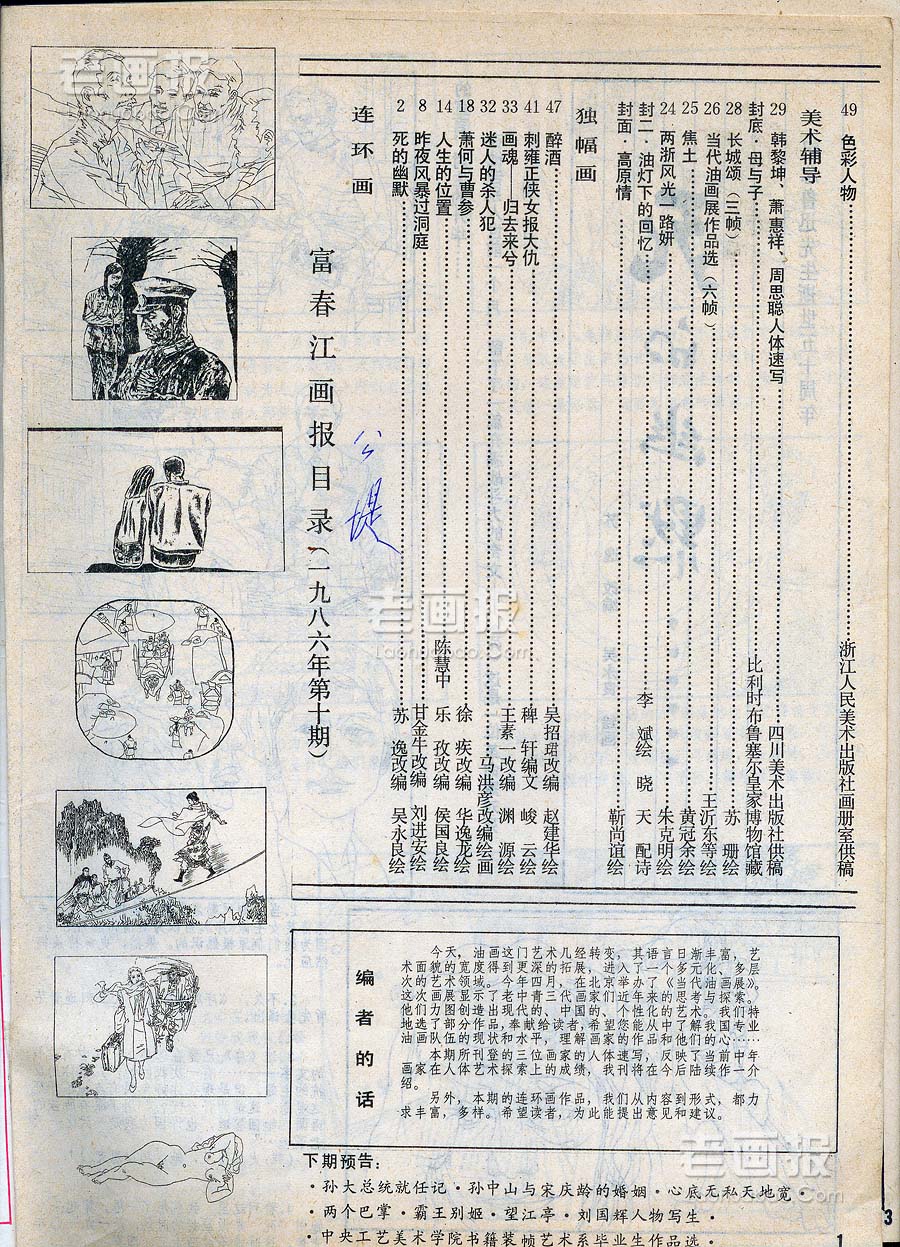 富春江画报目录（一九八六年第十期）
连环画
2 死的幽默……苏 逸改编 吴永良绘
8 昨夜风暴过洞庭……甘金牛改编 刘进安绘
14 人生的位置……陈慧中 乐 孜改编 侯国良绘
18 萧何与曹参……徐 疾改编 华逸龙绘
32 迷人的杀人犯……马洪彦改编绘画
33 画魂——归去来兮……王素一改编 渊 源绘
41 刺雍正侠女报大仇……稗 轩编文 峻 云绘
47 醉酒……吴招珺改编 赵建华绘
独幅画
封面·高原情……靳尚谊绘
封二·油灯下的回忆……李 斌绘 晓 天 配诗
24 两浙风光一路妍……朱克明绘
25 焦土……黄冠余绘
26 当代油画展作品选（六帧）……王沂东等绘
28 长城颂（三帧）……苏 珊绘
封底·母与子……比利时布鲁塞尔皇家博物馆藏
29 韩黎坤、萧惠祥、周思聪人体速写……四川美术出版社供稿
美术辅导
49 色彩人物……浙江人民美术出版社画册室供稿
编者的话
今天，油画这门艺术几经转变，其语言日渐丰富，艺
术面貌的宽度得到更深的拓展，进入了一个多元化、多层
次的艺术领域。今年四月，在北京举办了《当代油画展》。
这次画展显示了老中青三代画家们近年来的思考与探索。
他们力图创造出现代的、中国的、个性化的艺术。我们特
地选了部分作品，奉献给读者，希望您能从中了解我国专业
油画队伍的现状和水平，理解画家的作品和他们的心……
本期所刊登的三位画家的人体速写，反映了当前中年
画家在人体艺术探索上的成绩，我刊将在今后陆续作一介
绍。
另外，本期的连环画作品，我们从内容到形式，都力
求丰富，多样。希望读者，为此能提出意见和建议。
下期预告：
·孙大总统就任记·孙中山与宋庆龄的婚姻·心底无私天地宽·
·两个巴掌·霸王别姬·望江亭·刘国辉人物写生·
·中央工艺美术学院书籍装帧艺术系毕业生作品选·
1
3
老画报
Laohuabao.Com